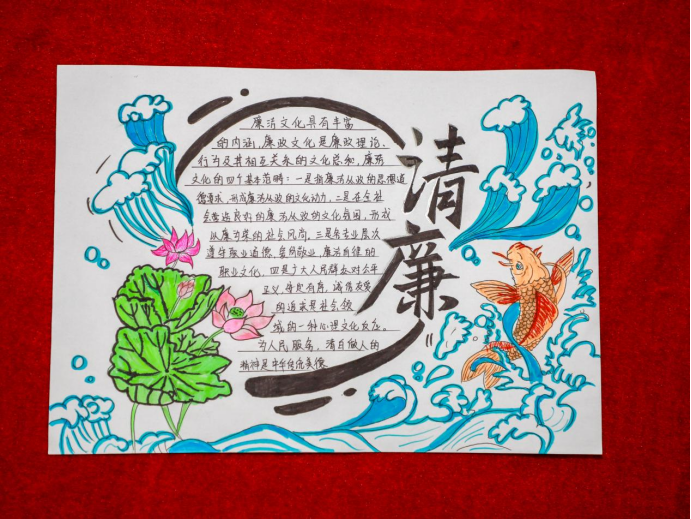 清廉
廉洁文化具有丰富
的内涵，廉政文化是廉政理论、
行为及其相互关系的文化总和，廉洁
文化的四个基本范畴：一是指廉洁从政的思想道
德要求，形成廉洁从政的文化动力，二是在全社
会营造良好的廉洁从政的文化氛围，形成
以廉为荣的社会风尚，三是各专业层次
遵守职业道德、爱岗敬业，廉洁自律的
职业文化，四是广大人民群众对公平
正义
的追求是社会领
域的一种心理文化反应。
为人民服务，清白做人的
精神是中华传统美德